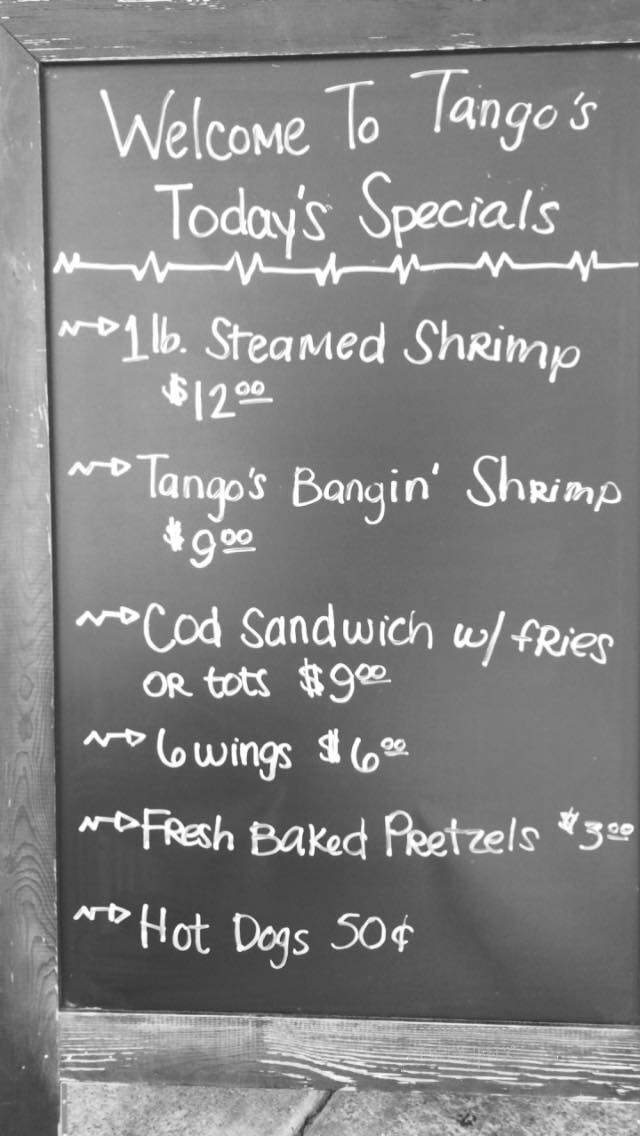 Welcome To Tango's
Today's Specials
1 lb. Steamed Shrimp
$12.00
Tango's Bangin' Shrimp
$9.00
Cod Sandwich w/ fries
or tots $9.00
6 wings $6.00
Fresh Baked Pretzels $3.00
Hot Dogs 50¢